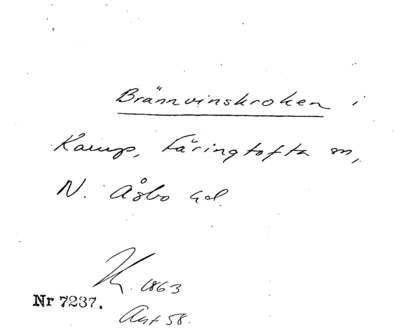 Brännvinskroken i
Kamp, Färingtofta sn,
N. Åsbo hd.
K. 1863
Nr 7237.
Ant 58.